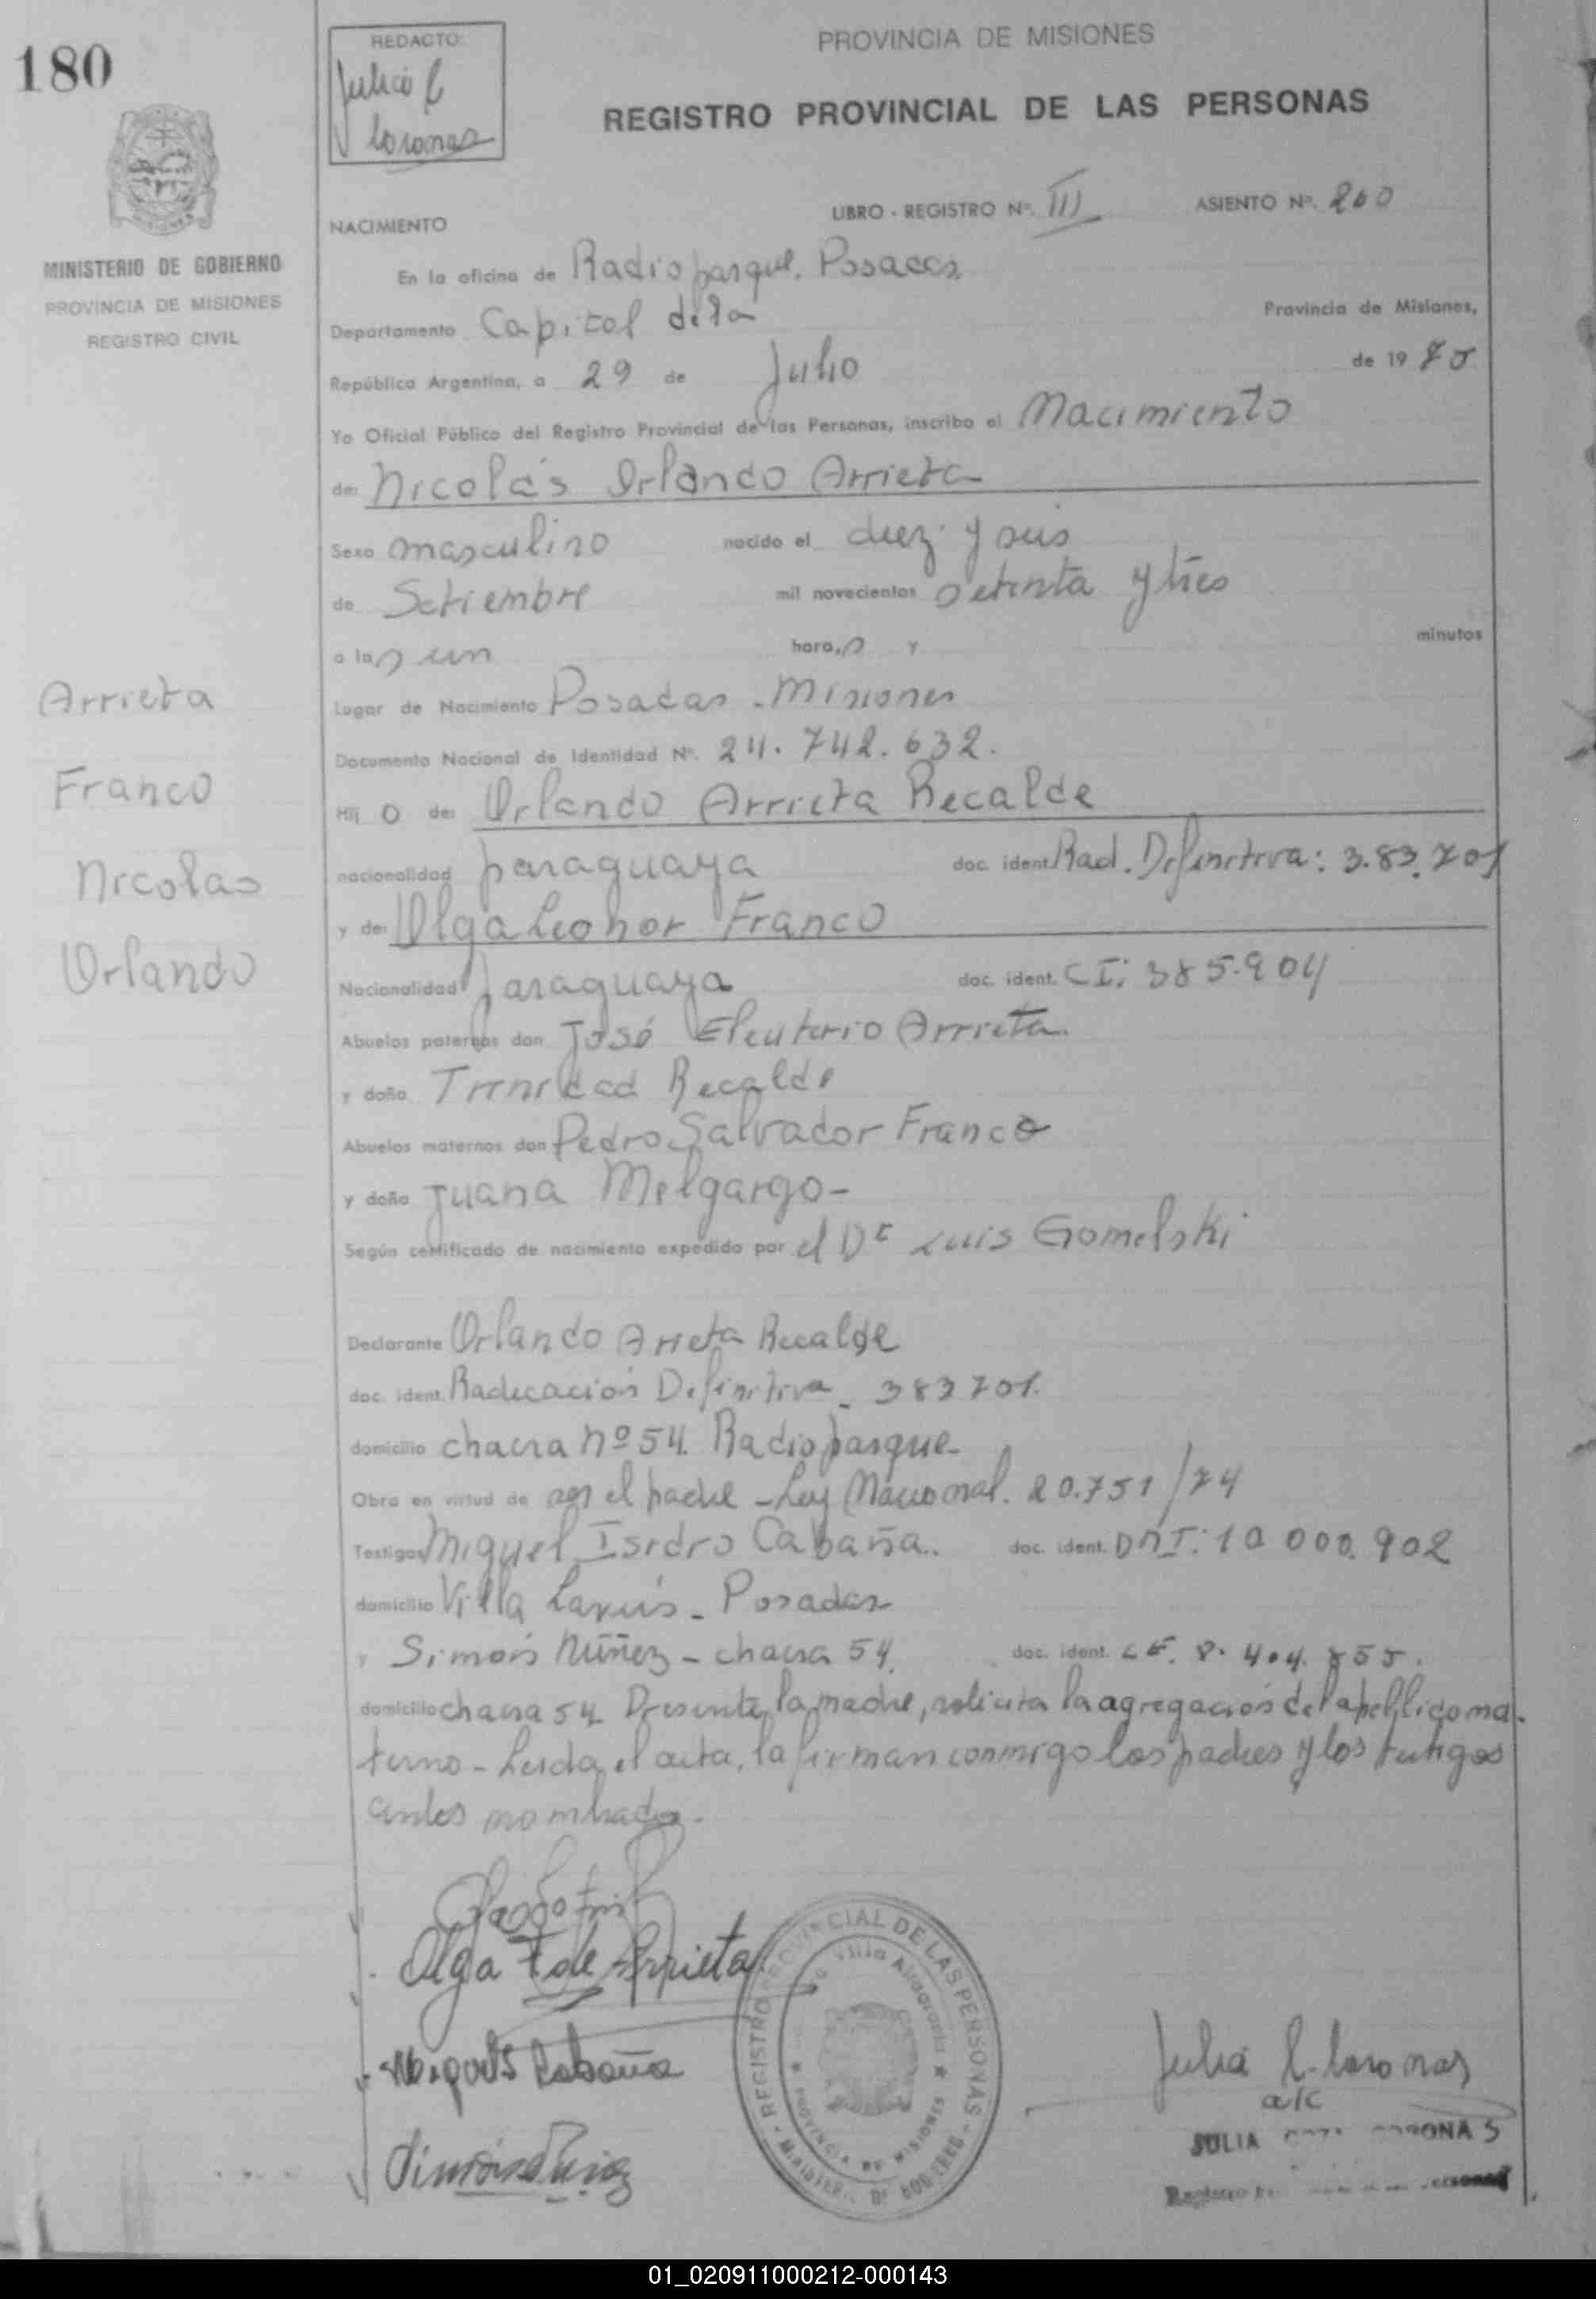 180
REDACTO:
Julia C
Coronas
PROVINCIA DE MISIONES
REGISTRO PROVINCIAL DE LAS PERSONAS
MINISTERIO DE GOBIERNO
PROVINCIA DE MISIONES
REGISTRO CIVIL
NACIMIENTO
LIBRO - REGISTRO Nº. III
ASIENTO Nº. 260
En la oficina de Radioparque, Posadas
Departamento Capital de la Provincia de Misiones,
República Argentina, a 29 de Julio de 1975
Yo Oficial Público del Registro Provincial de las Personas, inscribo el Nacimiento
de: Nicolás Orlando Arrieta
Sexo masculino nacido el diez y seis
de Setiembre mil novecientos setenta y tres
a las un horas y minutos
Arrieta
Franco
Nicolas
Orlando
Lugar de Nacimiento Posadas - Misiones
Documento Nacional de Identidad Nº. 24.742.632.
Hij o de: Orlando Arrieta Recalde
nacionalidad paraguaya doc. ident. Rad. Definitiva: 3.83.701
y de: Olga Leonor Franco
Nacionalidad paraguaya doc. ident. CI: 385.904
Abuelos paternos don José Eleuterio Arrieta
y doña Trinidad Recalde
Abuelos maternos don Pedro Salvador Franco
y doña Juana Melgargo-
Según certificado de nacimiento expedido por el Dr Luis Gomelski
Declarante Orlando Arieta Recalde
doc. ident. Radicación Definitiva - 383701.
domicilio chacra nº 54. Radioparque-
Obra en virtud de ser el padre - Ley Nacional. 20.751/74
Testigos Miguel Isidro Cabaña. doc. ident. DNI: 10 000.902
domicilio Villa Lanús - Posadas
y Simón Núñez - chacra 54. doc. ident. LE. 8.404.855.
domicilio chacra 54 Presente la madre, solicita la agregación del apellido ma-
terno - Leida el acta, la firman conmigo los padres y los testigos
antes nombrados.
Olga F de Arrieta
Cabaña
Simón Núñez
REGISTRO PROVINCIAL DE LAS PERSONAS - MINISTER. DE GOBIERNO
Villa
PROVINCIA DE MISIONES
Julia C. Coronas
a/c
JULIA CORONAS
Registro
01_020911000212-000143